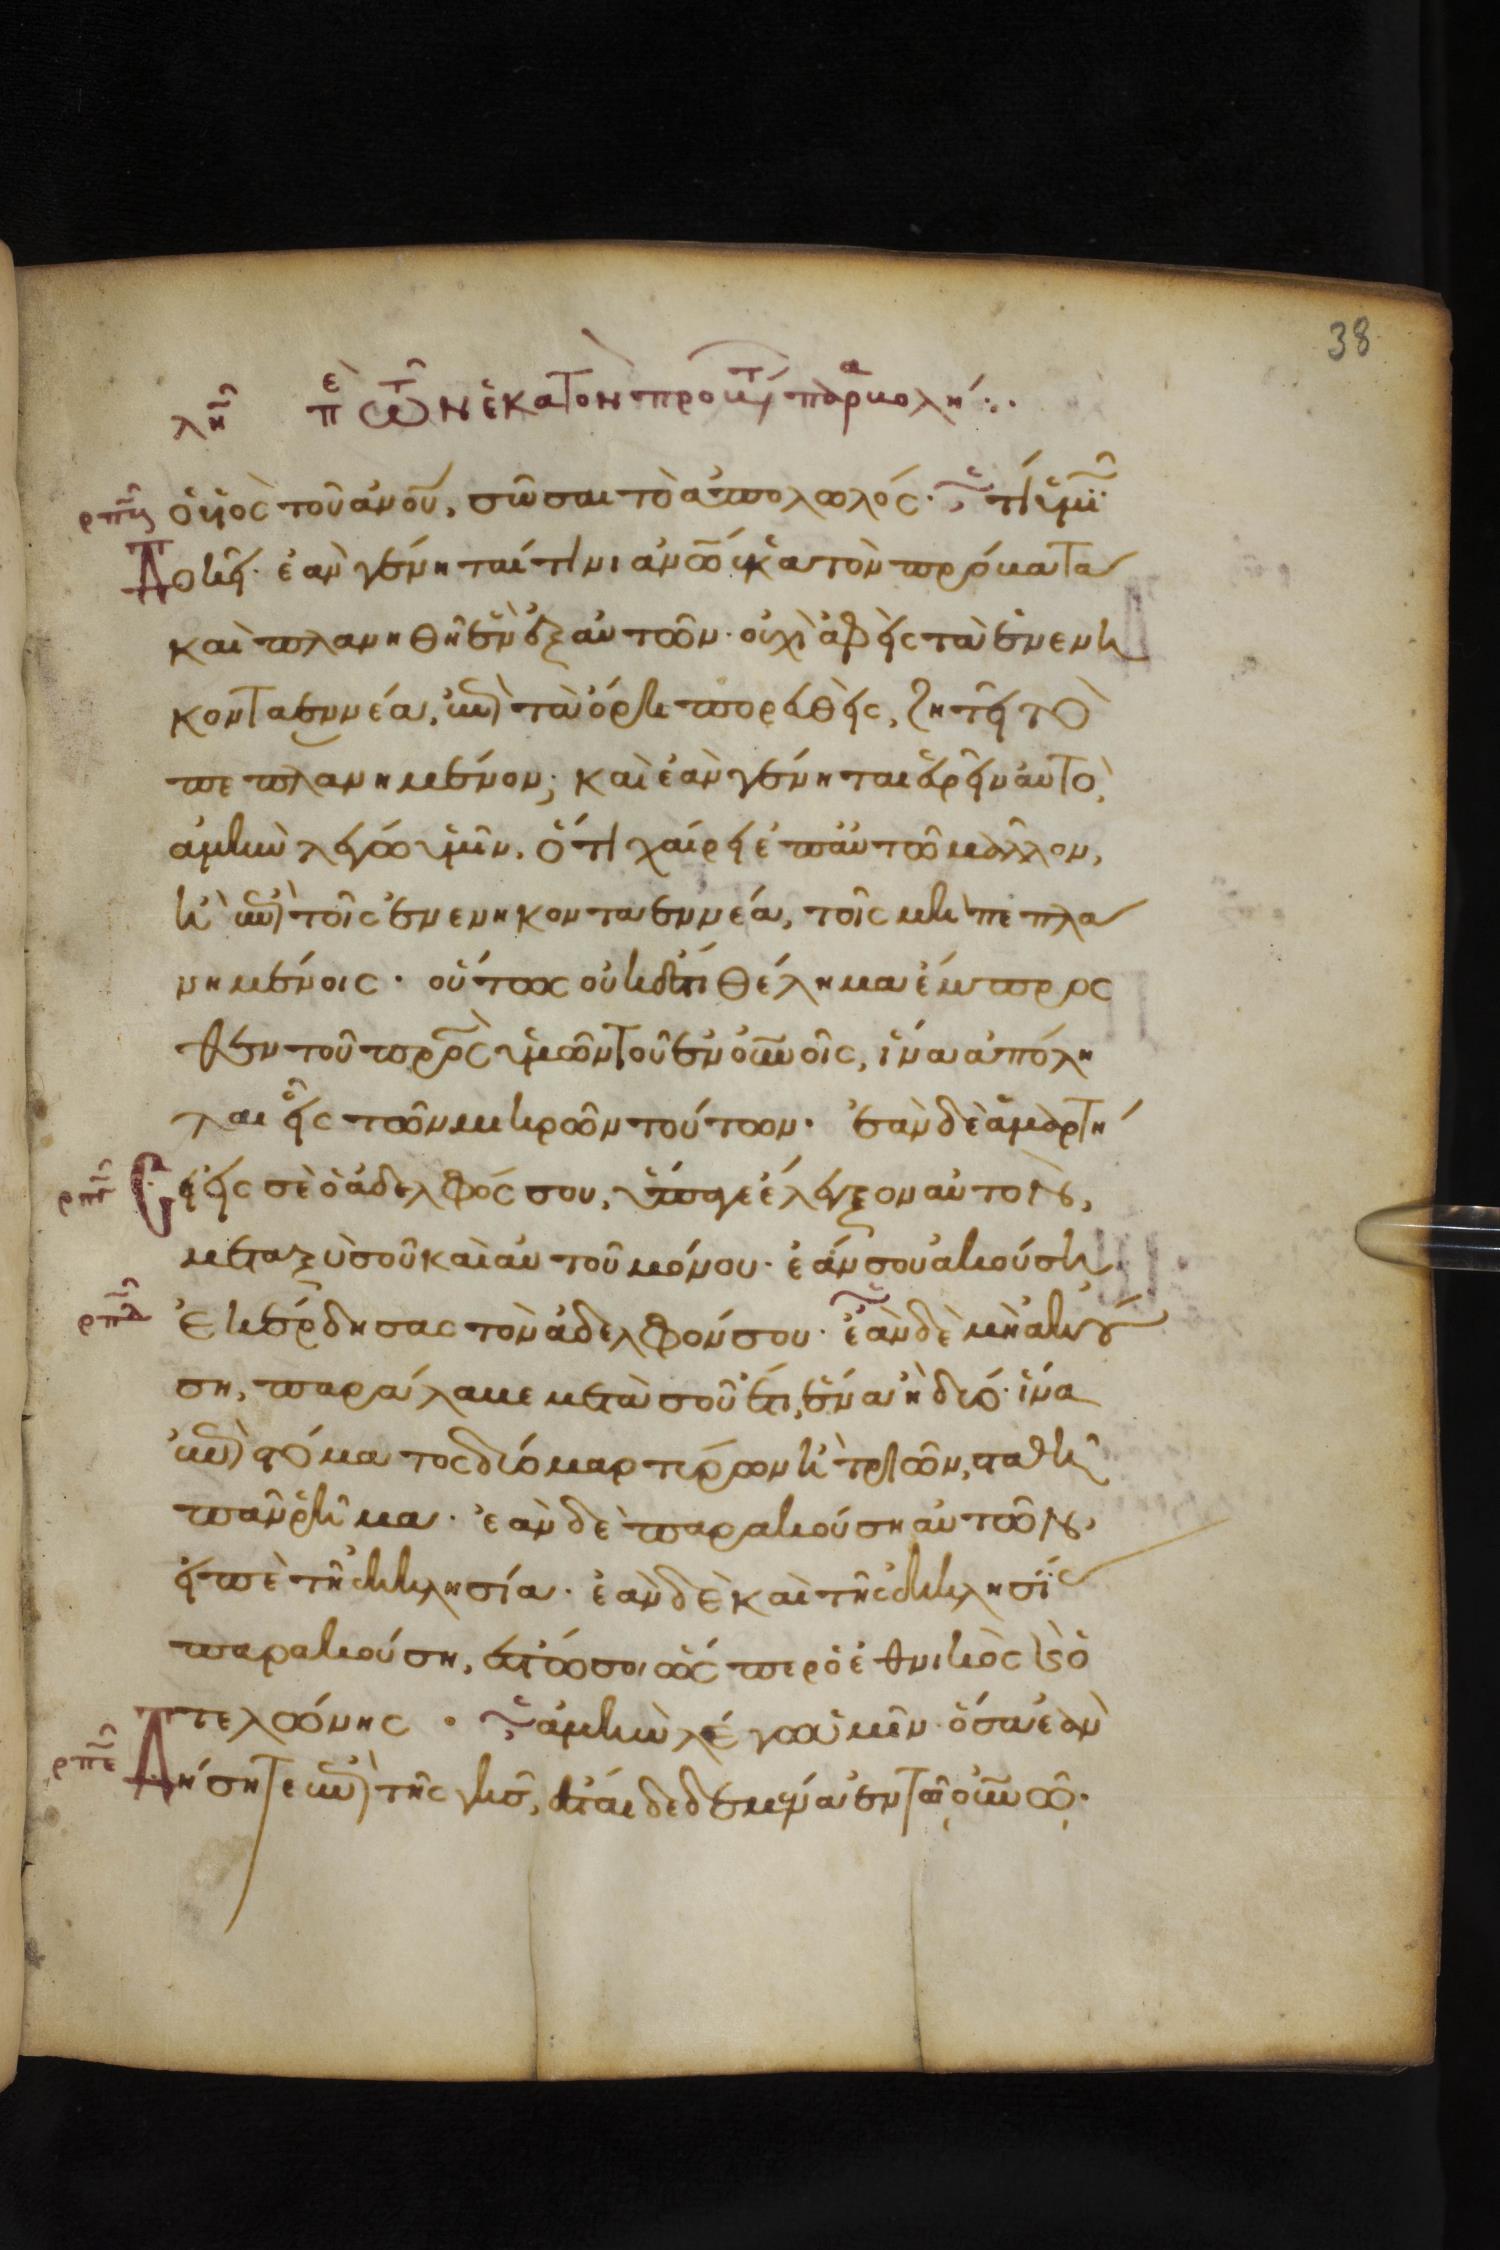 38
λη περὶ τῶν ἑκατὸν προβάτ παραβολή·:·
ρπβ ὁ υἱὸς τοῦ ἀνου, σῶσαι τὸ ἀπολωλός· τί ὑμῖ
Δοκεῖ· ἐὰν γένηταί τινι ἀνω ἑκατὸν πρόβατα
καὶ πλανηθῆ ἓν ἐξ αὐτῶν· οὐχὶ ἀφεὶς τὰ ἐνενη
κονταεννέα, ἐπὶ τὰ ὄρη πορευθεὶς, ζητεῖ τὸ
πεπλανημένον; καὶ ἐὰν γένηται εὑρεῖν αὐτὸ,
ἀμὴν λέγω ὑμῖν, ὅτι χαίρει ἐπ αὐτῶ μᾶλλον,
ἢ ἐπὶ τοῖς ἐνενηκονταεννέα, τοῖς μὴ πεπλα
νημένοις· οὕτως οὐκ ἔστι θέλημα ἔμπροσ
θεν τοῦ πρς ὑμῶν τοῦ ἐν οὐνοῖς, ἵνα ἀπόλη
ται εἷς τῶν μικρῶν τούτων· ἐὰν δὲ ἁμαρτή
ρπγ ση εἰς σὲ ὁ ἀδελφός σου, ὕπαγε ἔλεγξον αὐτὸν,
μεταξὺ σοῦ καὶ αὐτοῦ μόνου· ἐάν σου ἀκούση
ρπδ ἐκέρδησας τὸν ἀδελφόν σου· ἐὰν δὲ μὴ ἀκού
ση, παράλαβε μετὰ σοῦ ἔτι, ἕνα ἢ δύο· ἵνα
ἐπὶ στόματος δύο μαρτύρων ἢ τριῶν, σταθῆ
πᾶν ῥῆμα· ἐὰν δὲ παρακούση αὐτῶν,
εἰπὲ τῆ ἐκκλησία· ἐὰν δὲ καὶ τῆς ἐκκλησίς
παρακούση, ἔστω σοι ὥσπερ ὁ ἐθνικὸς κ ὁ
τελώνης · ἀμὴν λέγω ὑμῖν· ὅσα ἐὰν
ρπε Δήσητε ἐπὶ τῆς γῆς, ἔσται δεδεμένα ἐν τῶ οὐνῶ·